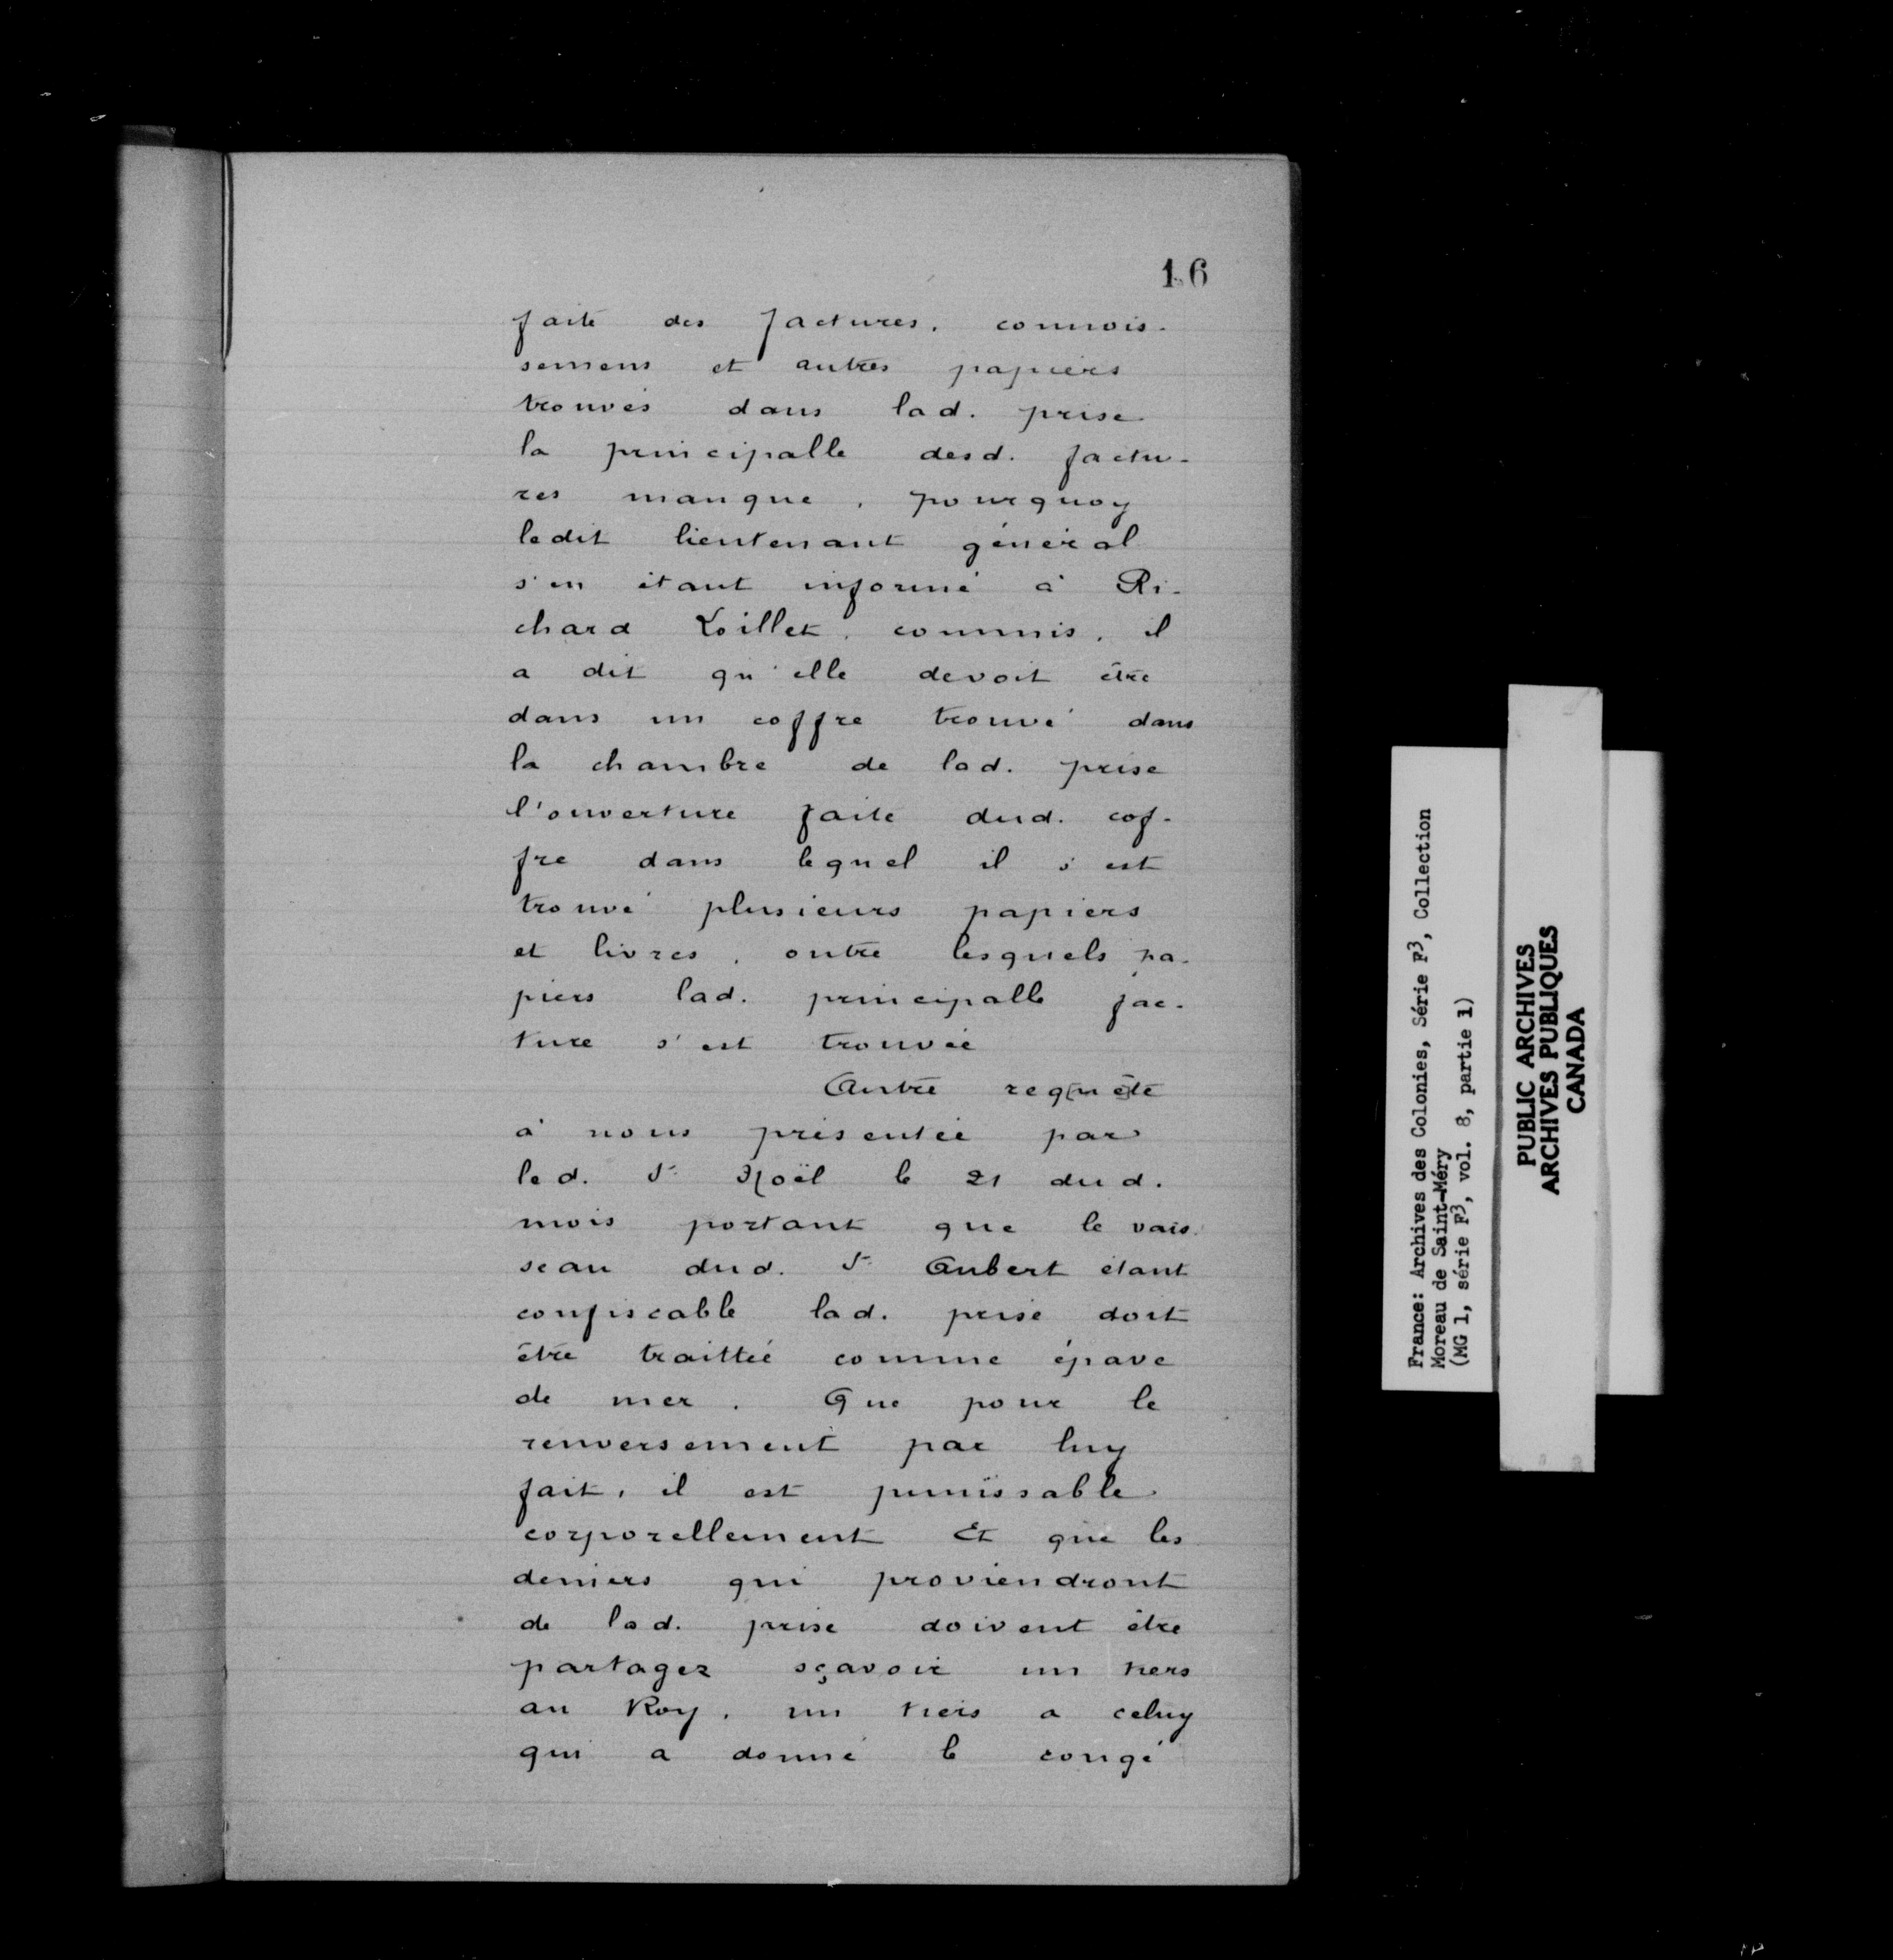 16
faite des factures, connois-
semens et autres papiers
trouvés dans lad. prise
la principalle desd. factu-
res manque, pourquoy
ledit lieutenant général
s'en étant informé à Ri-
chard Loillet, commis, il
a dit qu'elle devoit être
dans un coffre trouvé dans
la chambre de lad. prise
l'ouverture faite dud. cof-
fre dans lequel il s'est
trouvé plusieurs papiers
et livres, outre lesquels pa-
piers lad. principalle fac-
ture s'est trouvée
Autre req[uê]te
à nous présentée par
led. Sr. Noël le 21 dud.
mois portant que le vais-
seau dud. Sr. Aubert étant
confiscable lad. prise doit
être traittée comme épave
de mer. Que pour le
renversement par luy
fait, il est punissable
corporellement Et que les
deniers qui proviendront
de lad. prise doivent être
partagez sçavoir un tiers
au Roy, un tiers a celuy
qui a donné le congé
France: Archives des Colonies, Série F3, Collection
Moreau de Saint-Méry
(MG 1, série F3, vol. 8, partie 1)
PUBLIC ARCHIVES
ARCHIVES PUBLIQUES
CANADA